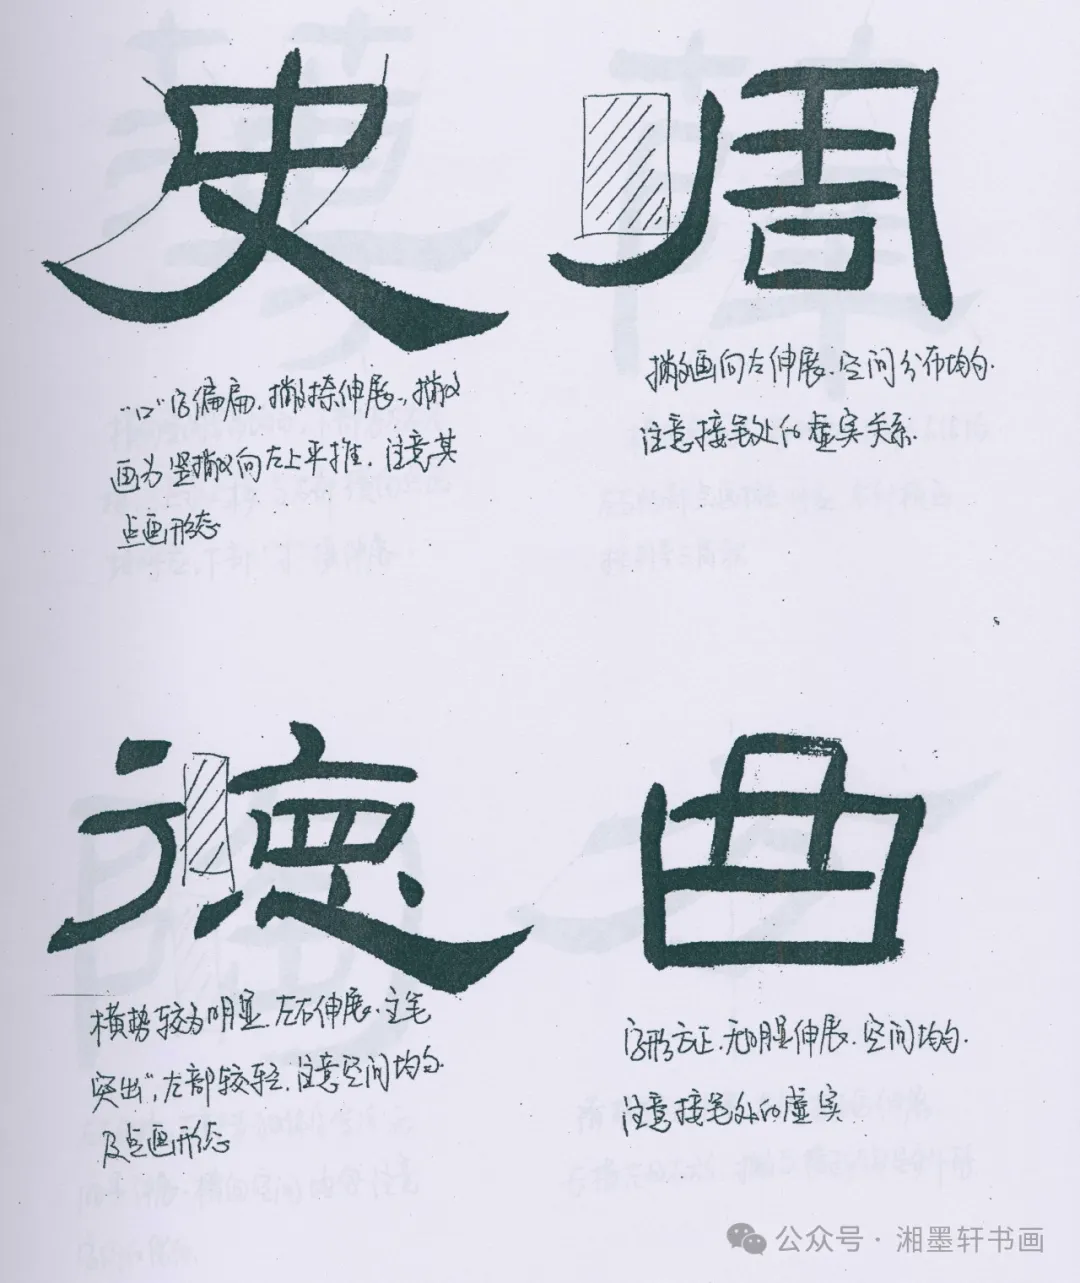 史
周
"口"字偏扁.撇捺伸展,撇
画为竖撇向左上平推.注意其
点画形态
撇画向左伸展.空间分布均匀.
注意接笔处的虚实关系.
德
曲
横势较为明显.左右伸展.主笔
突出,左部较轻.注意空间均匀.
及点画形态
字形方正.无明显伸展.空间均匀.
注意接笔处的虚实
公众号·湘墨轩书画